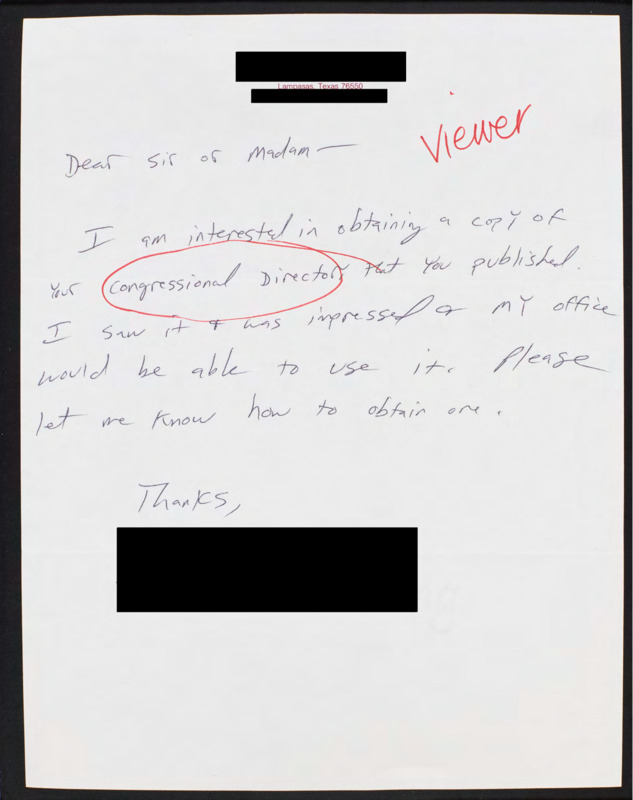 Lampasas, Texas 76550
Viewer
Dear Sir or Madam —
I am interested in obtaining a copy of
your Congressional Directory that you published.
I saw it & was impressed & my office
would be able to use it. Please
let me know how to obtain one.
Thanks,